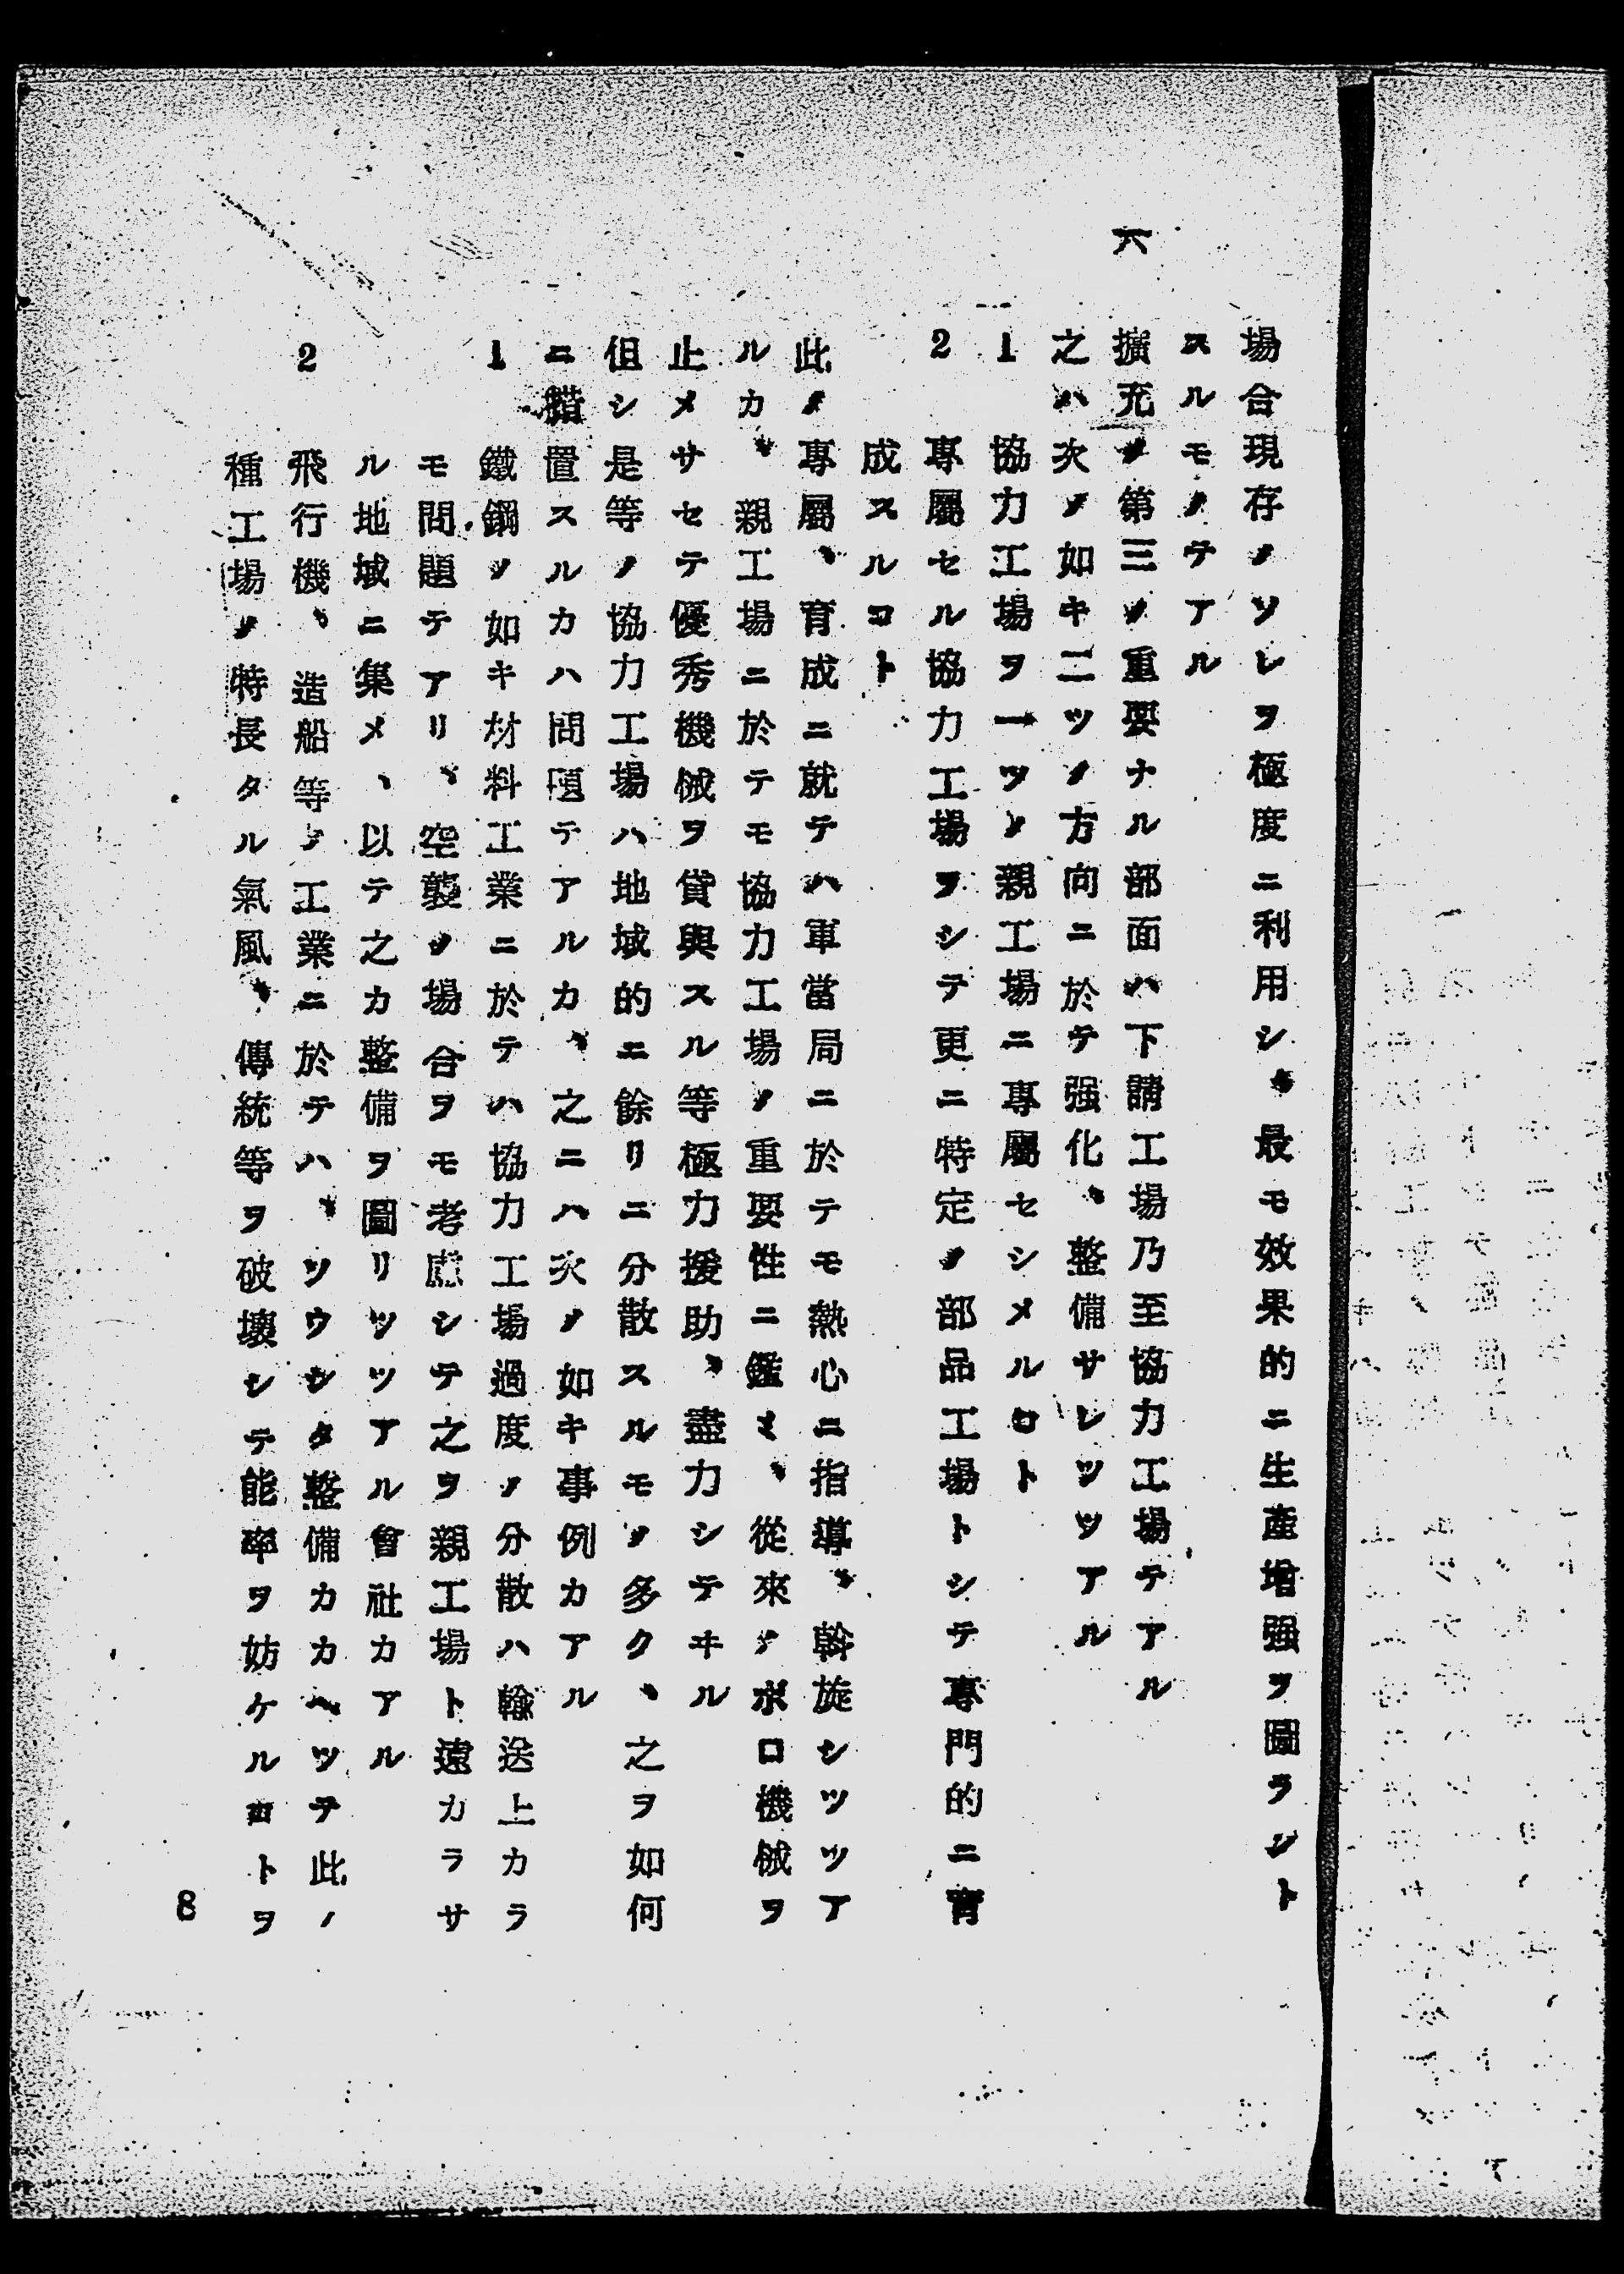 場合現存ノソレヲ極度ニ利用シ、最モ效果的ニ生產增强ヲ圖ラント
スルモノテアル
六 擴充ノ第三ノ重要ナル部面ハ下請工場乃至協力工場テアル
之ハ次ノ如キ二ツノ方向ニ於テ强化、整備サレツツアル
1 協力工場ヲ一ツノ親工場ニ專屬セシメルコト
2 專屬セル協力工場ヲシテ更ニ特定ノ部品工場トシテ專門的ニ育
成スルコト
此ノ專屬、育成ニ就テハ軍當局ニ於テモ熱心ニ指導、斡旋シツツア
ルカ、親工場ニ於テモ協力工場ノ重要性ニ鑑ミ、從來ノボロ機械ヲ
止メサセテ優秀機械ヲ貸與スル等極力援助、盡力シテヰル
但シ是等ノ協力工場ハ地域的ニ餘リニ分散スルモノ多ク、之ヲ如何
ニ措置スルカハ問題テアルカ、之ニハ次ノ如キ事例カアル
1 鐵鋼ノ如キ材料工業ニ於テハ協力工場過度ノ分散ハ輸送上カラ
モ問題テアリ、空襲ノ場合ヲモ考慮シテ之ヲ親工場ト遠カラサ
ル地域ニ集メ、以テ之カ整備ヲ圖リツツアル會社カアル
2 飛行機、造船等ノ工業ニ於テハ、ソウシタ整備カカヘツテ此ノ
種工場ノ特長タル氣風、傳統等ヲ破壞シテ能率ヲ妨ケルコトヲ
8